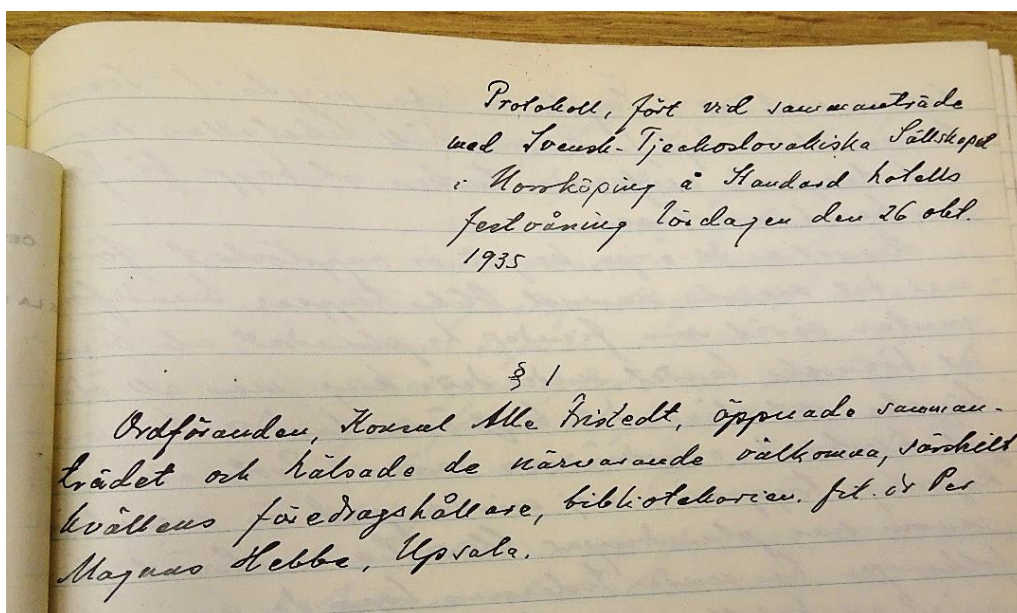 Protokoll, fört vid sammanträde
med Svensk-Tjeckoslovakiska Sällskapet
i Norrköping å Standard hotells
festvåning lördagen den 26 okt.
1935
§ 1
Ordföranden, Konsul Alle Fristedt, öppnade samman-
trädet och hälsade de närvarande välkomna, särskilt
kvällens föredragshållare, bibliotekarien fil. dr Per
Magnus Hebbe, Upsala.